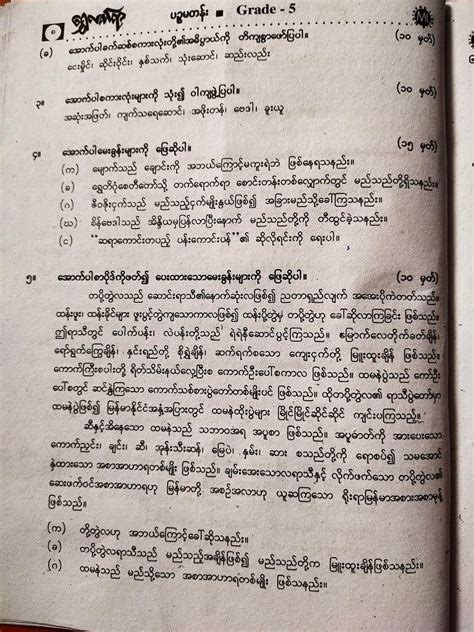 ရွှေလက်ရာ ပဉ္စမတန်း ■ Grade - 5
(ခ) အောက်ပါခက်ဆစ်စကားလုံးတို့၏အဓိပ္ပာယ်ကို တိကျစွာဖော်ပြပါ။ (၁၀ မှတ်)
ငေးမှိုင်၊ ဆိုင်းဝိုင်း၊ နှစ်သက်၊ သုံးဆောင်၊ ဆည်းလည်း
၃။ အောက်ပါစကားလုံးများကို သုံး၍ ဝါကျဖွဲ့ပြပါ။ (၁၀ မှတ်)
အဆုံးအဖြတ်၊ ကျက်သရေဆောင်၊ အဖိုးတန်၊ ဗေဒါ၊ ခူးယူ
၄။ အောက်ပါမေးခွန်းများကို ဖြေဆိုပါ။ (၁၅ မှတ်)
(က) မျောက်သည် ချောင်းကို အဘယ်ကြောင့်မကူးရဲဘဲ ဖြစ်နေရသနည်း။
(ခ) ရွှေတိဂုံစေတီတော်သို့ တက်ရောက်ရာ စောင်းတန်းတစ်လျှောက်တွင် မည်သည်တို့ရှိသနည်း။
(ဂ) ဇီဝဇိုးငှက်သည် မည်သည့်ငှက်မျိုးနွယ်ဖြစ်၍ အခြားမည်သို့ခေါ်ကြသနည်း။
(ဃ) စိန်ဗေဒါသည် အိန္ဒိယမှပြန်လာပြီးနောက် မည်သည်တို့ကို တီထွင်ခဲ့သနည်း။
(င) “ဆရာကောင်းတပည့် ပန်းကောင်းပန်”၏ ဆိုလိုရင်းကို ရေးပါ။
၅။ အောက်ပါစာပိုဒ်ကိုဖတ်၍ ပေးထားသောမေးခွန်းများကို ဖြေဆိုပါ။ (၁၀ မှတ်)
တပို့တွဲလသည် ဆောင်းရာသီ၏နောက်ဆုံးလဖြစ်၍ ညတာရှည်လျက် အအေးပိုက်တတ်သည်။
ထန်းဖူး၊ ထန်းခိုင်များ ဖူးပွင့်တွဲကျသောကာလဖြစ်၍ ထန်းပို့တွဲမှ တပို့တွဲဟု ခေါ်ဆိုလာကြခြင်း ဖြစ်သည်။
ဤရာသီတွင် ပေါက်ပန်း၊ လဲပန်းတို့သည် ရဲရဲနီဆောင်ပွင့်ကြသည်။ မြောက်လေတိုက်ခတ်ချိန်၊
ရော်ရွက်ကြွေချိန်၊ နှင်းရည်တို့ စိုရွှဲချိန်၊ ဆက်ရက်စသော ကျေးငှက်တို့ မြူးထူးချိန် ဖြစ်သည်။
ကောက်ကြီးစပါးတို့ ရိတ်သိမ်းနယ်လှေ့ပြီး၍ ကောက်ဦးပေါ်စကာလ ဖြစ်သည်။ ထမနဲပွဲသည် ကောက်ဦး
ပေါ်စတွင် ဆင်နွှဲကြသော ကောက်သစ်စားပွဲတော်တစ်မျိုးပင် ဖြစ်သည်။ ထိုတပို့တွဲလ၏ ရာသီပွဲတော်မှာ
ထမနဲပွဲဖြစ်၍ မြန်မာနိုင်ငံအနှံ့အပြားတွင် ထမနဲထိုးပွဲများ မြိုင်မြိုင်ဆိုင်ဆိုင် ကျင်းပကြသည်။
ဆီနှင့်အိနေသော ထမနဲသည် သဘာဝအရ အပူစာ ဖြစ်သည်။ အပူဓာတ်ကို အားပေးသော
ကောက်ညှင်း၊ ချင်း၊ ဆီ၊ အုန်းသီးဆန်၊ မြေပဲ၊ နှမ်း၊ ဆား စသည်တို့ကို ရောစပ်၍ သမအောင်
နှဲထားသော အစာအာဟာရတစ်မျိုး ဖြစ်သည်။ ချမ်းအေးသောလရာသီနှင့် လိုက်ဖက်သော တပို့တွဲလ၏
ဆေးဖက်ဝင်အစာအာဟာရဟု မြန်မာတို့ အစဉ်အလာဟု ယူဆကြသော ရိုးရာမြန်မာအစားအစာမုန့်
ဖြစ်သည်။
(က) တို့တွဲလဟု အဘယ်ကြောင့်ခေါ်ဆိုသနည်း။
(ခ) တပို့တွဲလရာသီသည် မည်သည့်အချိန်ဖြစ်၍ မည်သည်တို့က မြူးထူးချိန်ဖြစ်သနည်း။
(ဂ) ထမနဲသည် မည်သို့သော အစာအာဟာရတစ်မျိုး ဖြစ်သနည်း။